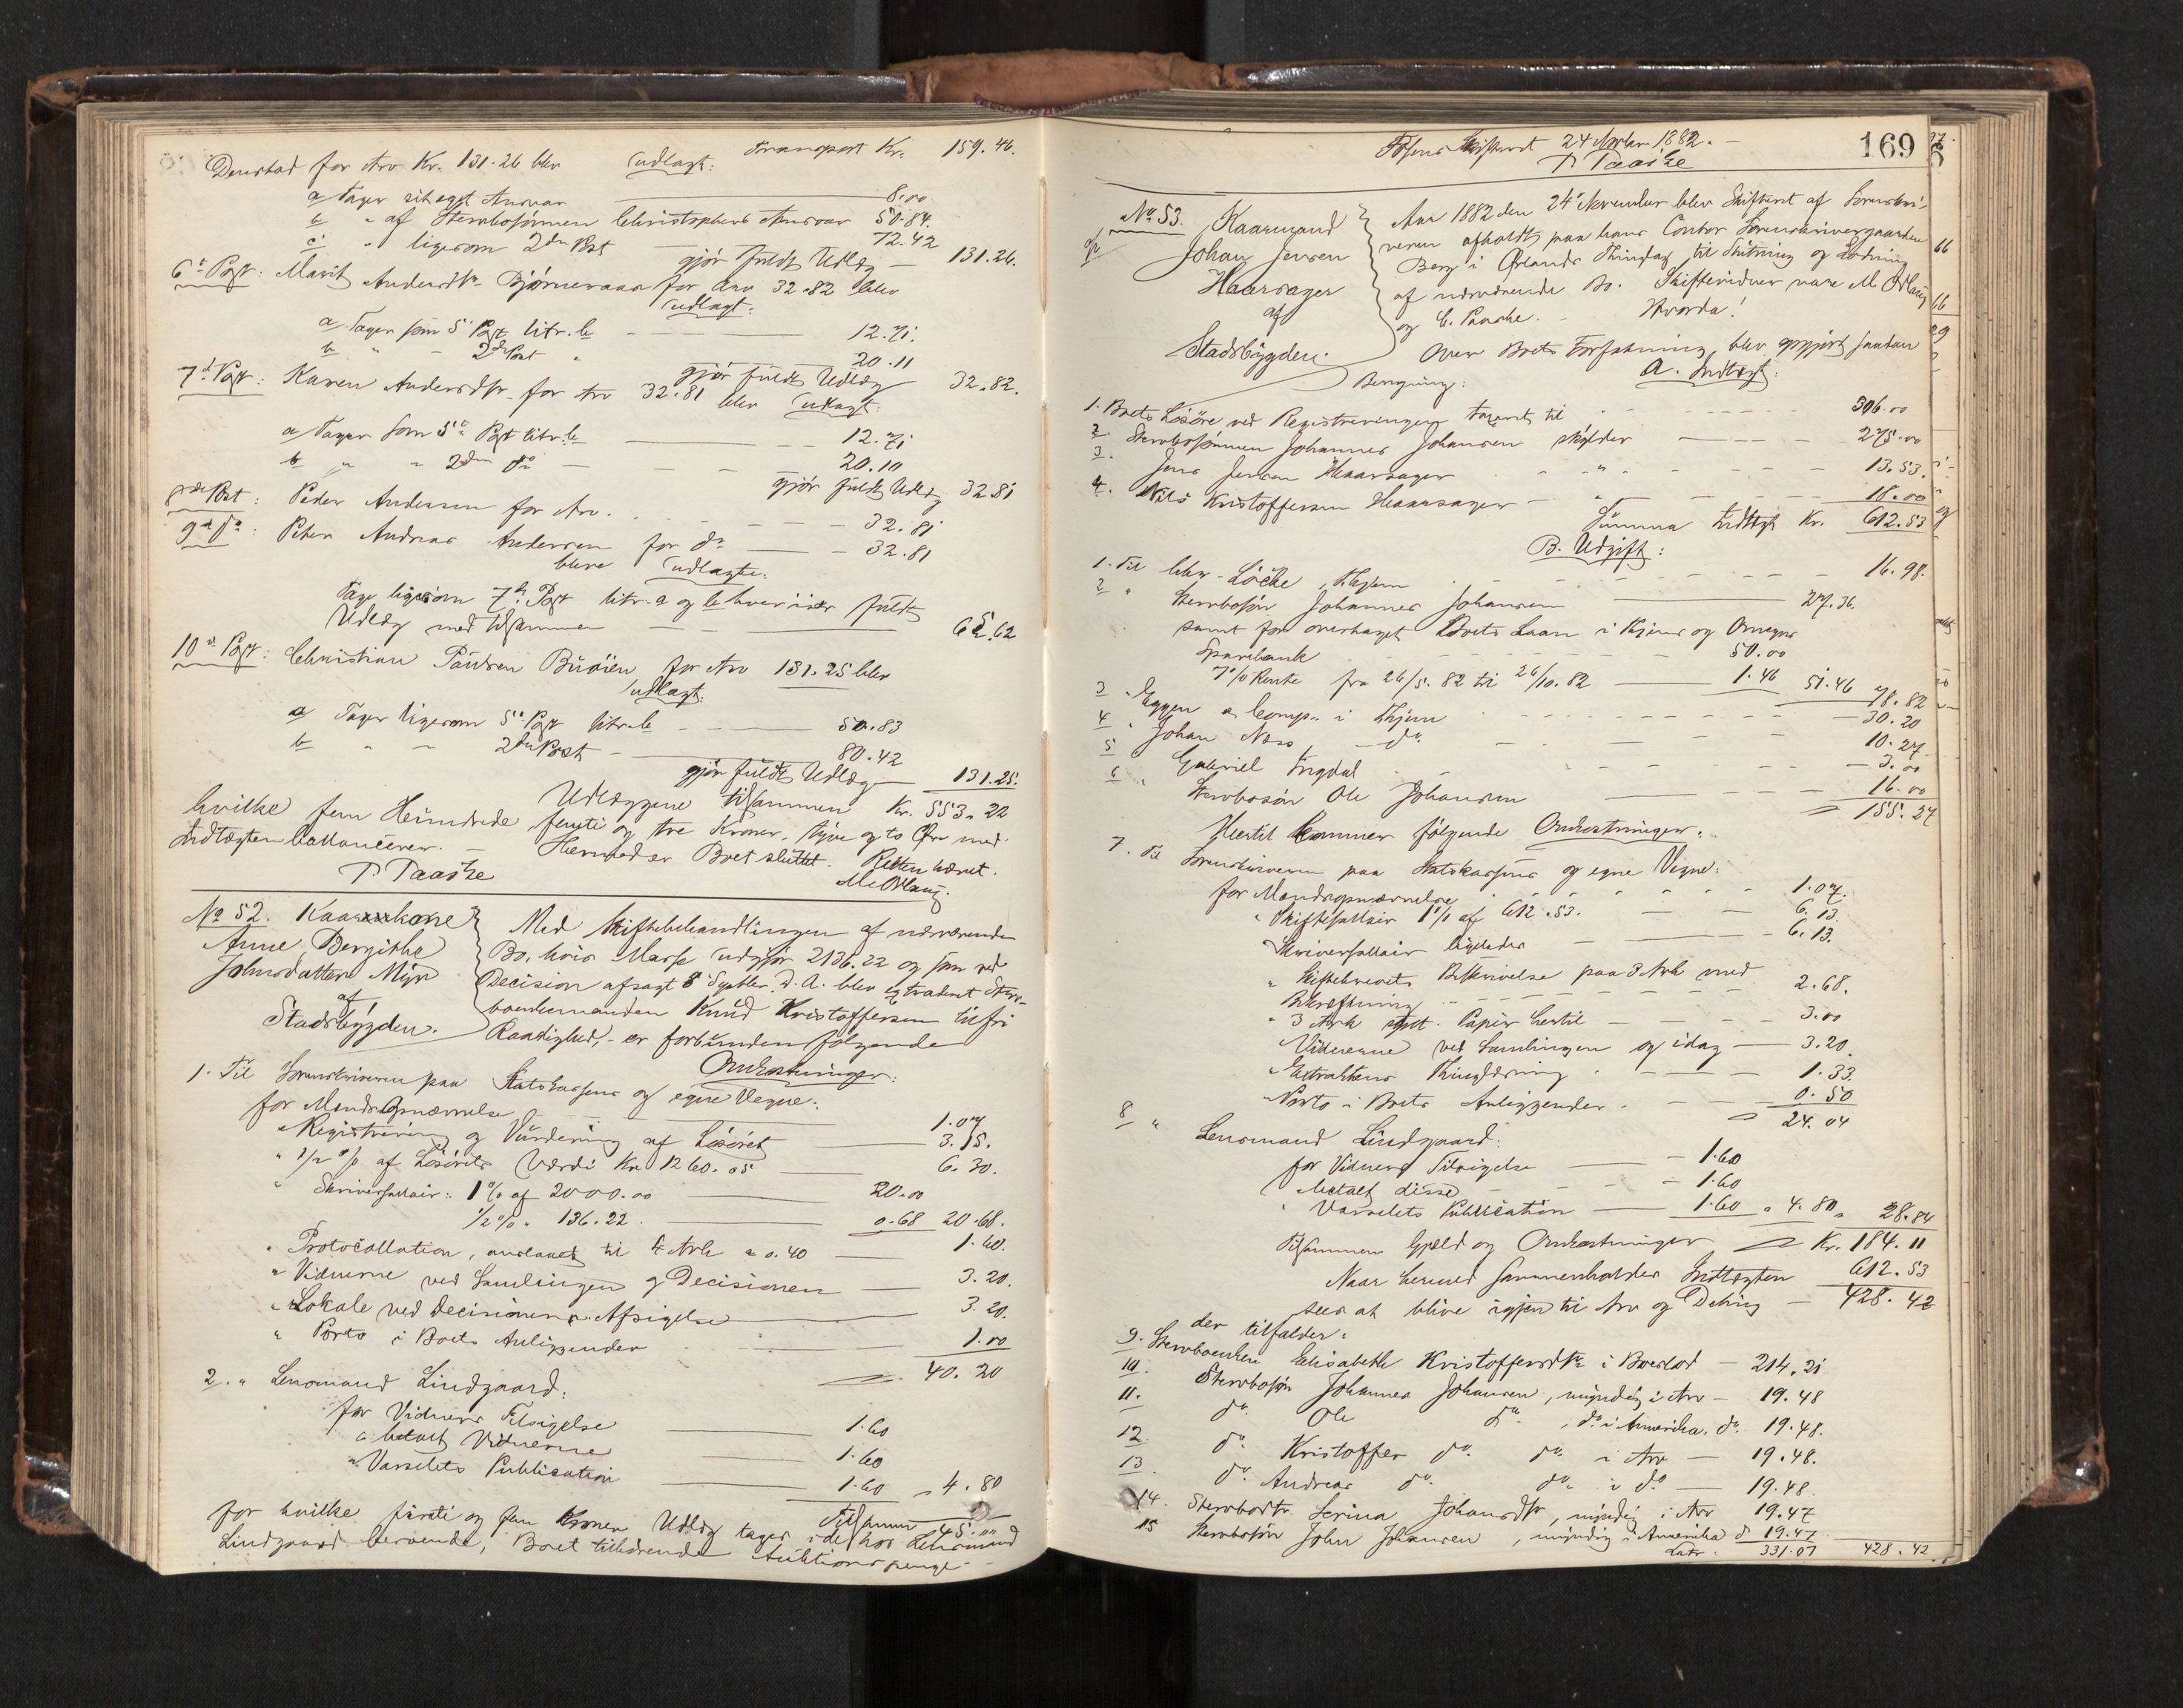 Transport Kr. 159.46.
Denstad for Arv Kr. 131.26 blev udlagt:
a Tager sit eget Ansvar 8.00
b " af Stervbosønnen Christophers Ansvar 50.84.
c " ligesom 2den Post 72.42
gjør fuldt Udlæg 131.26.
6te Post: Marit Andersdtr. Bjørnevaas for Arv 32.82 blev
udlagt:
a. Tager som 5te Post litr. b 12.71.
b " - 2den Post " 20.11
gjør fuldt Udlæg 32.82.
7de Post: Karen Andersdtr. for Arv 32.81 blev udlagt:
a Tager som 5te Post litr. b 12.71
b " " 2den do 20.10
gjør fuldt Udlæg 32.81
Post: Peder Andersen for Arv. 32.81
9de do: Peter Andreas Andersen for do 32.81
bleve udlagte:
Tage ligesom 7de Post litr. a og b hver især fuldt
Udlæg med tilsammen 65.62
10de Post: Christian Paulsen Buaien for Arv 131.25 blev
udlagt:
a Tager ligesom 5te Post litr. b 50.83
b " - 2den Post 80.42
gjør fuldt Udlæg 131.25.
Udlæggene tilsammen Kr. 553.22
hvilke fem Hundrede femti og tre Kroner, tyve og to Øre med
Indtægten ballancerer. - Hermed er Boet sluttet. Retten hævet.
P. Paaske M. Ødlaug.
No 52. Kaarkone
Anne Bergithe
Johnsdatter Myr
af
Stadsbygden.
Med Skiftebehandlingen af nærværende
Bo, hvis Masse udgjør 2136.22 og som ved
Decision afsagt 8 Septbr. d. A. blev extraderet Sterv-
boenkemanden Knud Kristoffersen til fri
Raadighed, - er forbunden følgende
Omkostninger:
1. Til Sorenskriveren paa Statskassens og egne Vegne:
for Mandsopnævnelse 1.07
" Registrering og Vurdering af Løsøret 3.15.
" 1/2 % af Løsørets Værdi Kr. 1260.05 6.30.
" Skriversallair: 1% af 2000.00 20.00
1/2% " 136.22. 0.68 20.68.
" Protocollation, anslaaet til 4 Ark a 0.40 1.60.
" Vidnerne ved Samlingen og Decisionen 3.20.
" Lokale ved Decisionens Afsigelse 3.20.
" Porto i Boets Anliggender 1.00
40.20
2. " Lensmand Lindgaard:
for Vidners Tilsigelse 1.60
" betalt Vidnerne 1.60
" Varselets Publication 1.60 4.80
Tilsammen 45.""
for hvilke førreti og fem Kroner Udlæg tages i de hos Lensmand
Lindgaard beroende, Boet tilhørende Auktionspenge -
Fosens Skifteret 24 Novbr. 1882. -
P. Paaske
169
No 53. Kaarmand
Johan Jensen
Haarsager
af
Stadsbygden.
Aar 1882 den 24 November blev Skifteret af Sorenskri-
veren afholdt paa hans Contor Sorenskrivergaarden
Berg i Ørlands Thinglag til Slutning og Lodning
af nærværende Bo. Skiftevidner vare M. Ødlaug
og C. Paaske. - Hvorda!
Over Boets Forfatning blev opgjort saadan
Beregning: A. Indtægt:
1. Boets Løsøre ved Registreringen taxeret til 306.00
2. Stervbosønnen Johannes Johansen skylder 275.00
3. Jens Jensen Haarsager " 13.53.
4. Nils Kristoffersen Haarsager " 18.00
Summa Indtægt Kr. 612.53
B. Udgift:
1. Til Chr. Löcke, Thjem 16.98.
2 " Stervbosøn Johannes Johansen 27.36.
samt for overtaget Boets Laan i Thjems og Omegns
Sparebank 50.00
7% Rente fra 26/5. 82 til 26/10. 82 1.46 51.46 78.82
3 " Eggen & Comp. i Thjem 30.20
4 " Johan Næss, do 10.27.
5 " Gabriel Ingdal 3.00
6 " Stervbosøn Ole Johansen 16.00
155.27
Hertil kommer følgende Omkostninger:
7. Til Sorenskriveren paa Statskassens og egne Vegne:
for Mandsopnævnelse 1.07.
" Skiftesallair 1% af 612.53. 6.13.
" Skriversallair ligeledes 6.13.
" Skiftebrevets Beskrivelse paa 3 Ark med
Bekræftning 2.68.
" 3 Ark stplt. Papir hertil 3.00
" Vidnerne ved Samlingen og idag 3.20.
" Extraktens Thinglæsning 1.33.
" Porto i Boets Anliggender 0.50
24.04
8 " Lensmand Lindgaard:
for Vidners Tilsigelse 1.60
" betalt disse 1.60
" Varselets Publication 1.60 " 4.80 " 28.84
Tilsammen Gjæld og Omkostninger Kr. 184.11
Naar hermed sammenholdes Indtægten 612.53
sees at blive igjen til Arv og Deling 428.42
der tilfalder:
9. Stervboenken Elisabeth Kristoffersdtr i Boeslod 214.21
10. Stervbosøn Johannes Johansen, myndig i Arv 19.48
11. do Ole do, do i Amerika. do 19.48.
12 do Kristoffer do do i Arv 19.48.
13. do Andreas do do i do 19.48.
14. Stervbodtr. Serina Johansdtr, myndig i Arv 19.47
15 Stervbosøn John Johansen, myndig i Amerika do 19.47
Latr. 331.07 428.42.